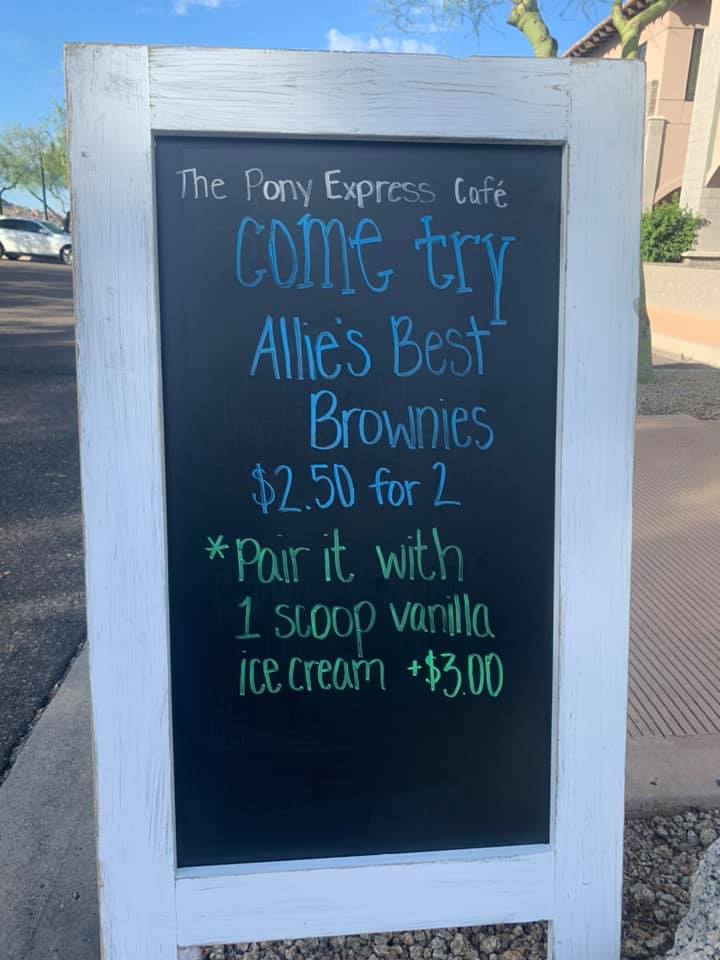 The Pony Express Café
come try
Allie's Best
Brownies
$2.50 for 2
*Pair it with
1 scoop vanilla
ice cream +$3.00